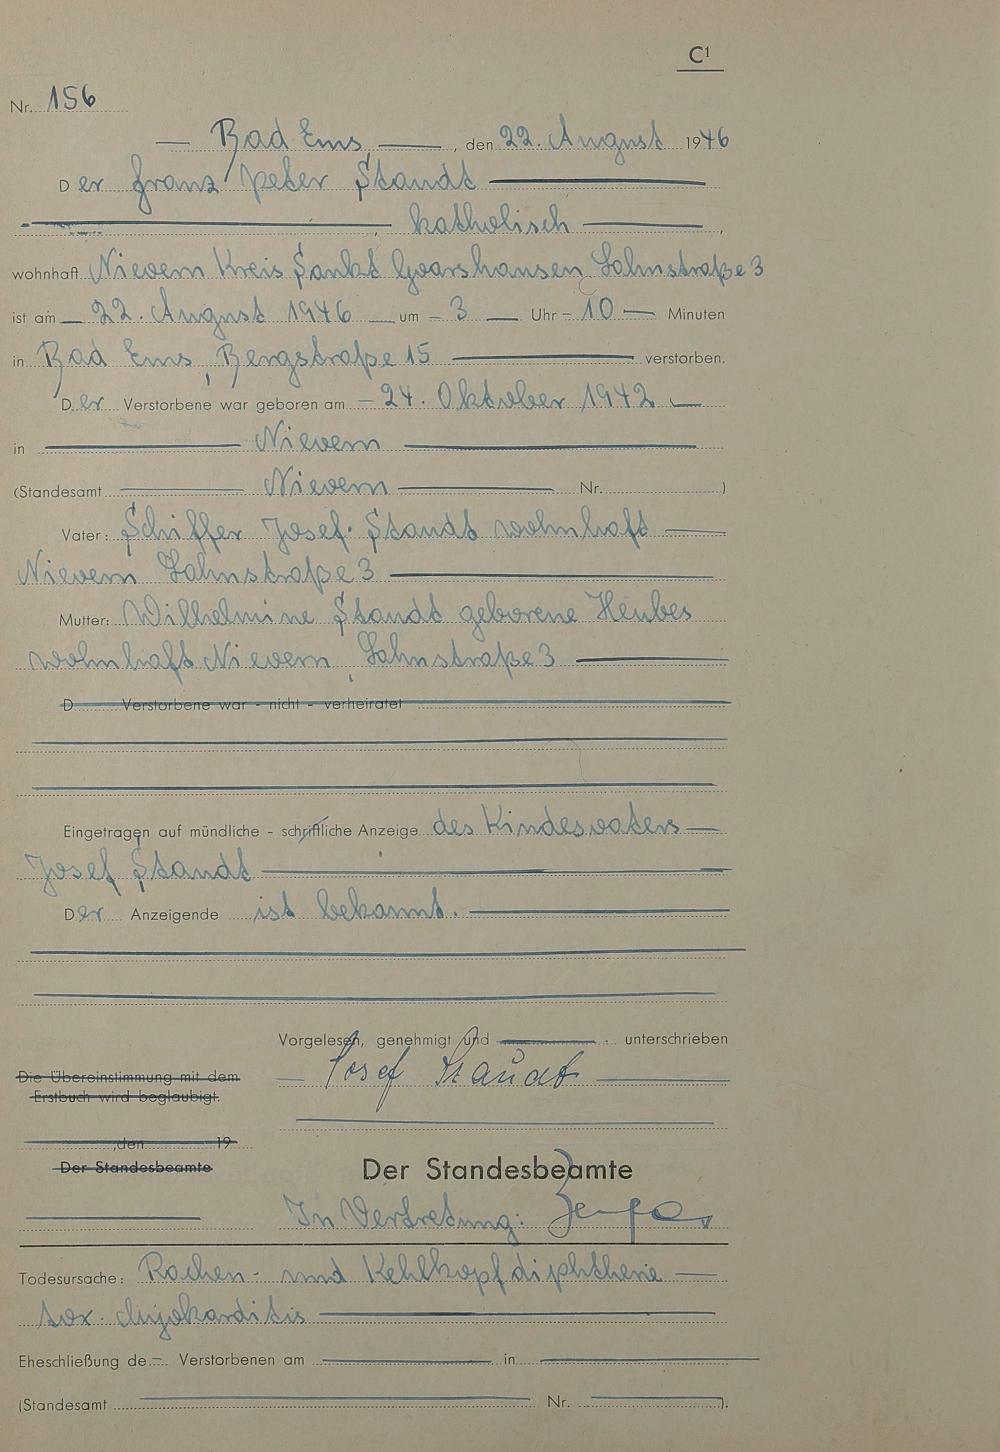 C¹
Nr. 156
— Bad Ems —, den 22. August 1946
Der Franz Peter Staudt —
—, katholisch —,
wohnhaft Nievern Kreis Sankt Goarshausen Lahnstraße 3
ist am — 22. August 1946 — um — 3 — Uhr — 10 — Minuten
in Bad Ems, Bergstraße 15 — verstorben.
Der Verstorbene war geboren am — 24. Oktober 1942 —
in — Nievern —
(Standesamt — Nievern — Nr. )
Vater: Schiffer Josef Staudt wohnhaft —
Nievern Lahnstraße 3 —
Mutter: Wilhelmine Staudt geborene Heubes
wohnhaft Nievern, Lahnstraße 3 —
D Verstorbene war - nicht - verheiratet
Eingetragen auf mündliche - schriftliche Anzeige des Kindesvaters —
Josef Staudt —
Der Anzeigende ist bekannt. —
Vorgelesen, genehmigt und — unterschrieben
— Josef Staudt —
Die Übereinstimmung mit dem
Erstbuch wird beglaubigt.
, den 19
Der Standesbeamte
Der Standesbeamte
In Vertretung:
Todesursache: Rachen- und Kehlkopfdiphtherie —
tox. Myokarditis —
Eheschließung de — Verstorbenen am — in —
(Standesamt — Nr. — ).